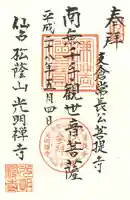 奉拝
支倉常長公菩提寺
南無千手觀世音菩薩
平成二十八年五月四日
仙台 松蔭山 光明禅寺